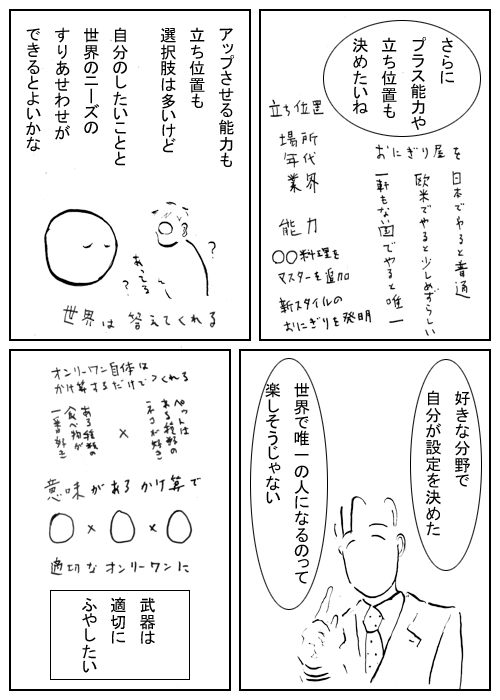 さらに
プラス能力や
立ち位置も
決めたいね
立ち位置
場所
年代
業界
能力
〇〇料理を
マスターを追加
新スタイルの
おにぎりを発明
おにぎり屋を
日本でやると普通
欧米でやると少しめずらしい
一軒もない国でやると唯一
アップさせる能力も
立ち位置も
選択肢は多いけど
自分のしたいことと
世界のニーズの
すりあせわせが
できるとよいかな
?
あってる
?
世界は答えてくれる
好きな分野で
自分が設定を決めた
世界で唯一の人になるのって
楽しそうじゃない
オンリーワン自体は
かけ算するだけでつくれる
ペットは
ある種類の
ネコが好き
×
ある種類の
食べ物が
一番好き
意味があるかけ算で
〇×〇×〇
適切なオンリーワンに
武器は
適切に
ふやしたい